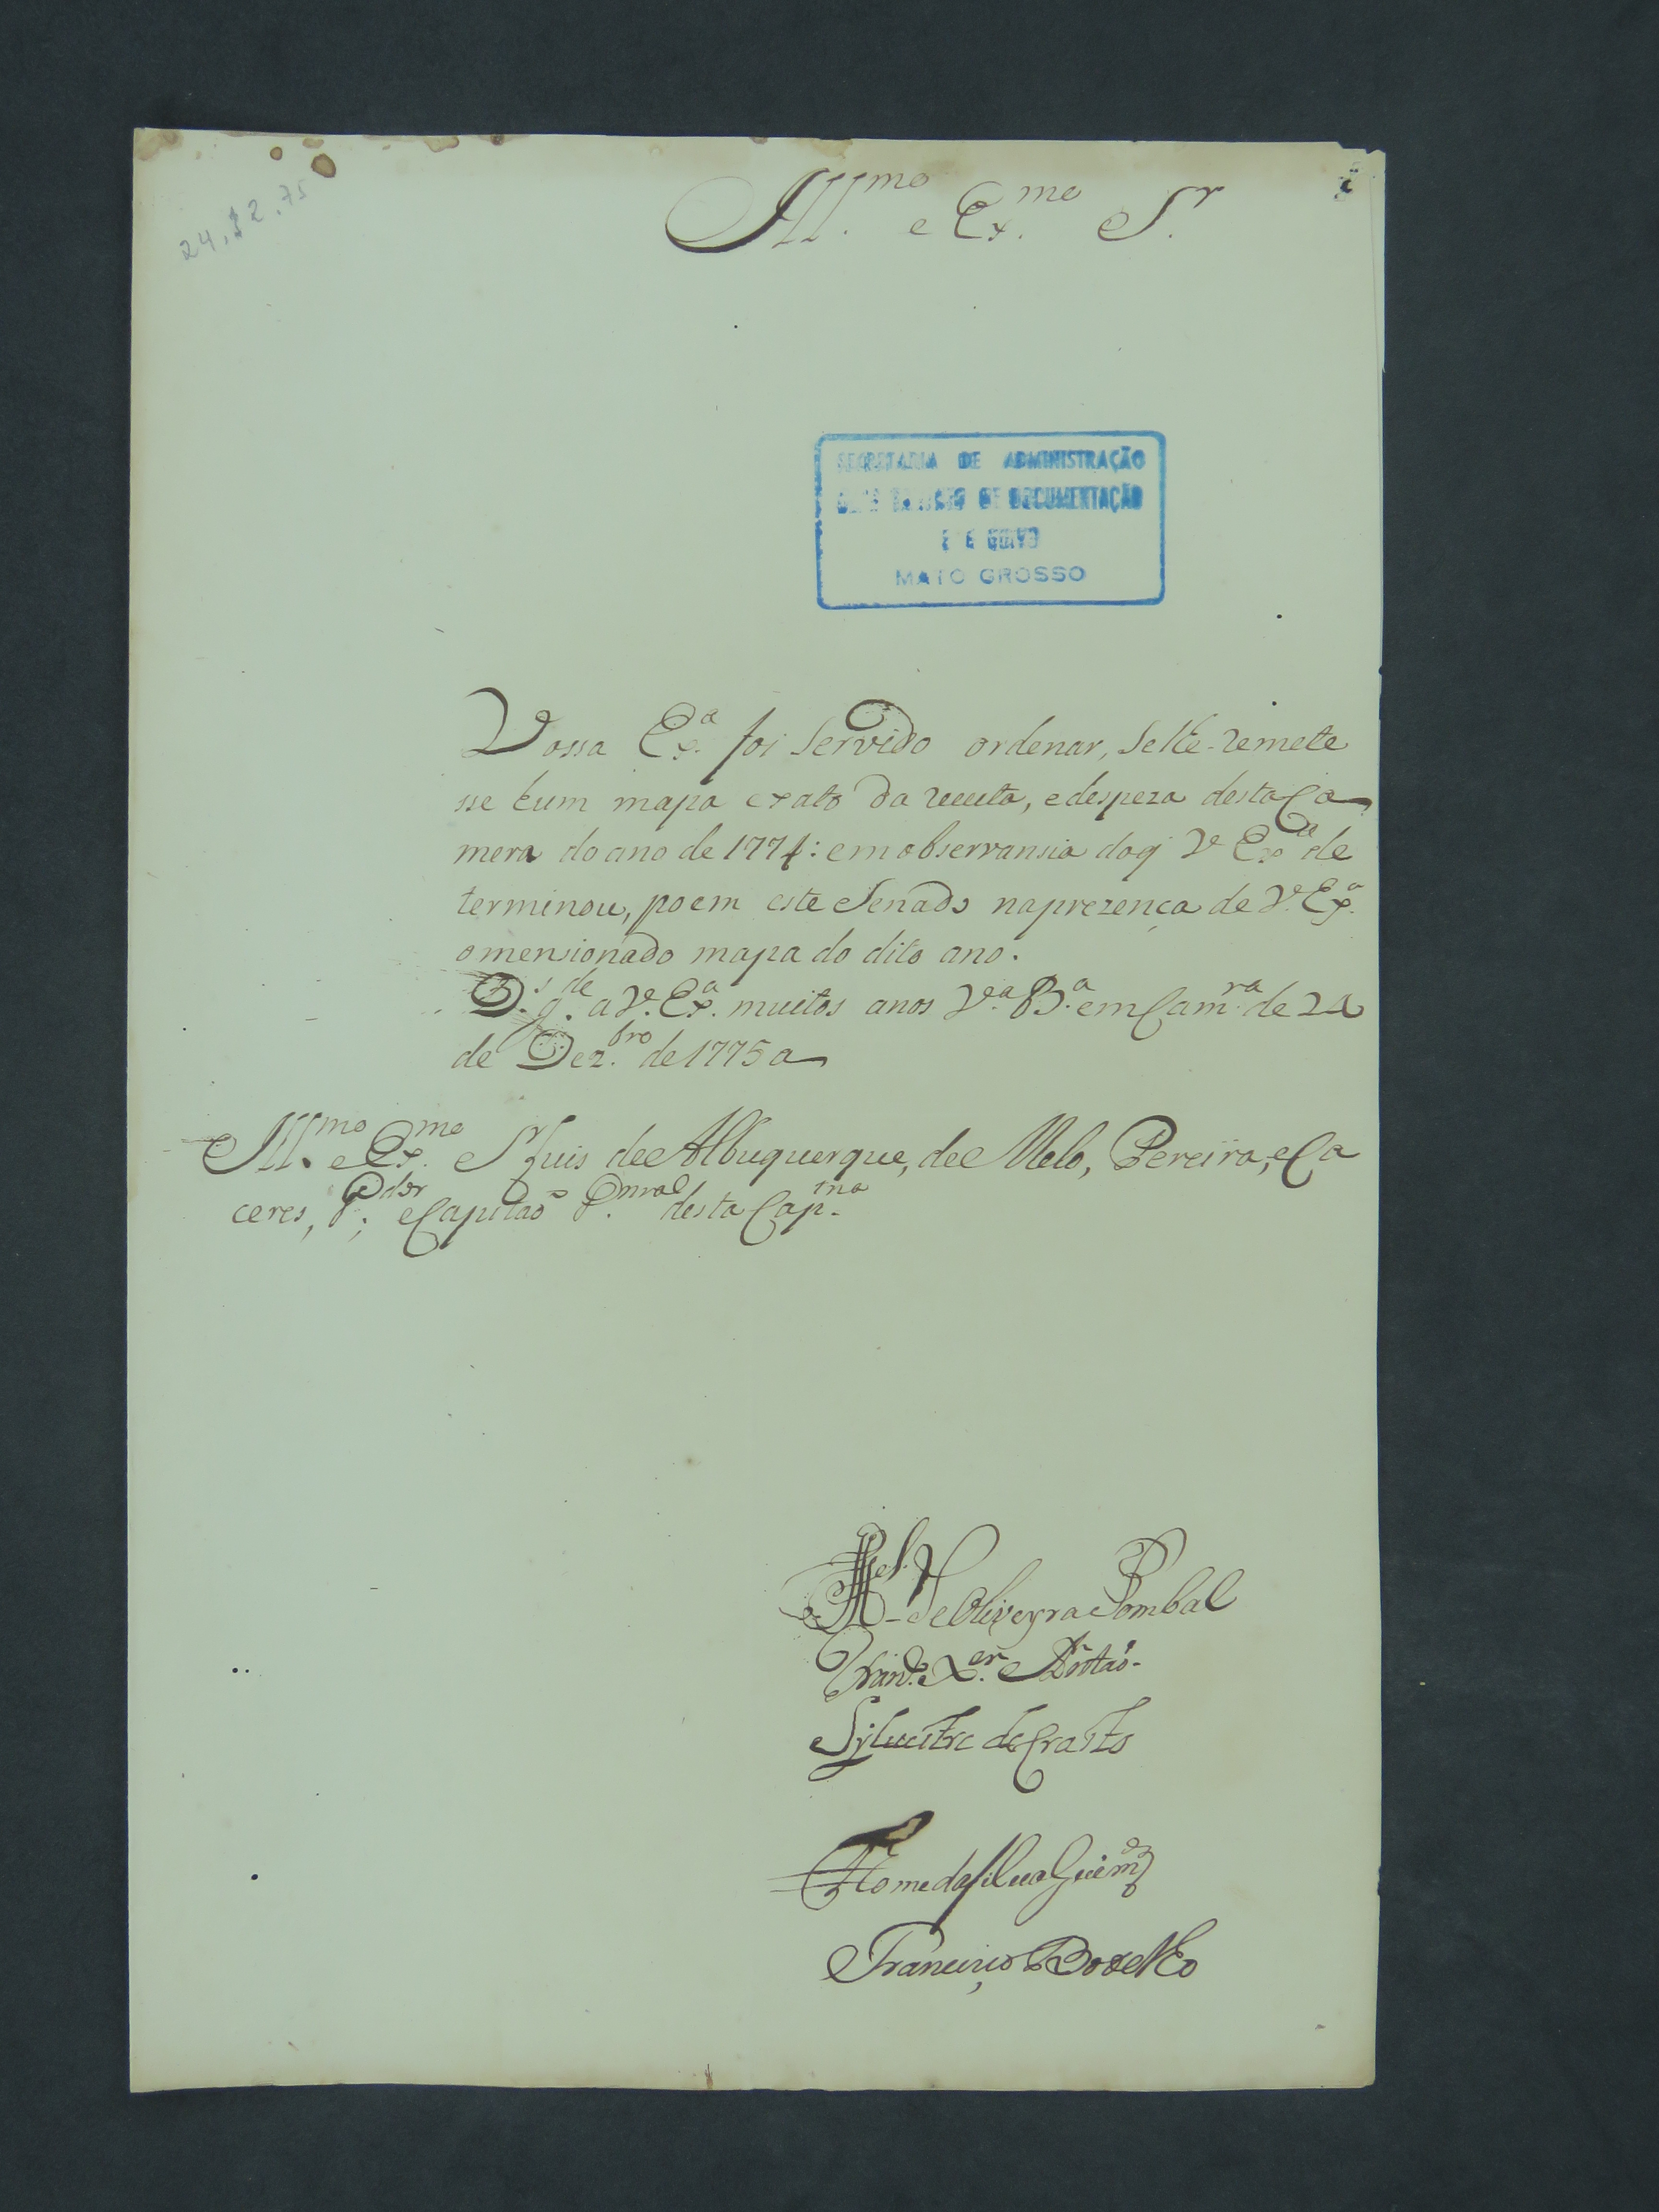 24.12.75
Ill.mo e Ex.mo S.r
SECRETARIA DE ADMINISTRAÇÃO
DE DOCUMENTAÇÃO
E
MATO GROSSO
Vossa Ex.a foi Servido ordenar, Selhe-remete
sse hum mapa exato da receita, edespeza destaCa
mera do ano de 1774: em observansia doq V.e Ex.a de
terminou, poem este Senado naprezença de V.e Ex.a
omensionado mapa do dito ano.
D.s g.de a V.e Ex.a muitos anos V.a B.a em Cam.ra de 24
de Dez.bro de 1775 a
Ill.mo e Ex.mo S.r Luis de Albuquerque, de Melo, Pereira, e Ca
ceres, G.dor; eCapitaõ G.nral desta Cap.nia
de Oliveyra Pombal
Fran.co X.er Antaõ.
Sylvestre de Crasto
Thome da Silva Guim.
Francisco Botelho